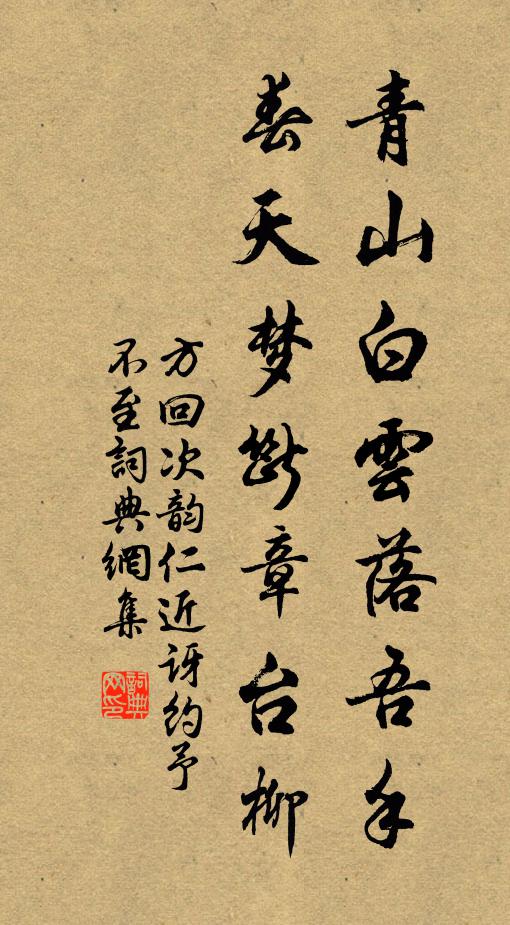 青山白雲落吾手
春天梦斷章台柳
方回次韵仁近讶约予
不至詞典網集
詞典网印